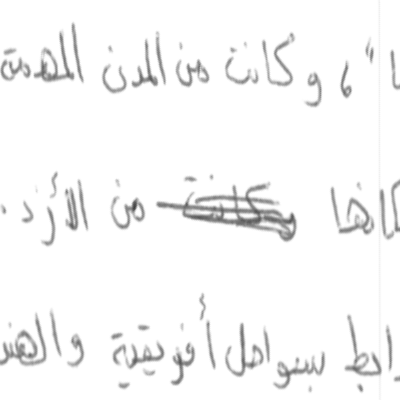 ا"، وكانت من المدن المهمة
كانها وكانت من الأزد.
رابط بسواحل أفريقية والهند